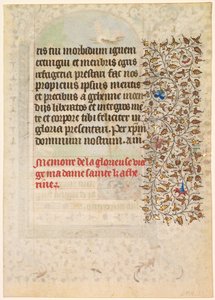 tis tui morbidum igneum
extingui et menbris eius
refugeria prestari fac nos
propicius ipsius meritis
et precibus a gehenne incen
diis liberatos et integros me
te et corpore tibi feliciter in
gloria presentari. Per xpm
dominum nostrum. am.
Memoire de la glorieuse vier
ge ma dame sainte kathe
rine.